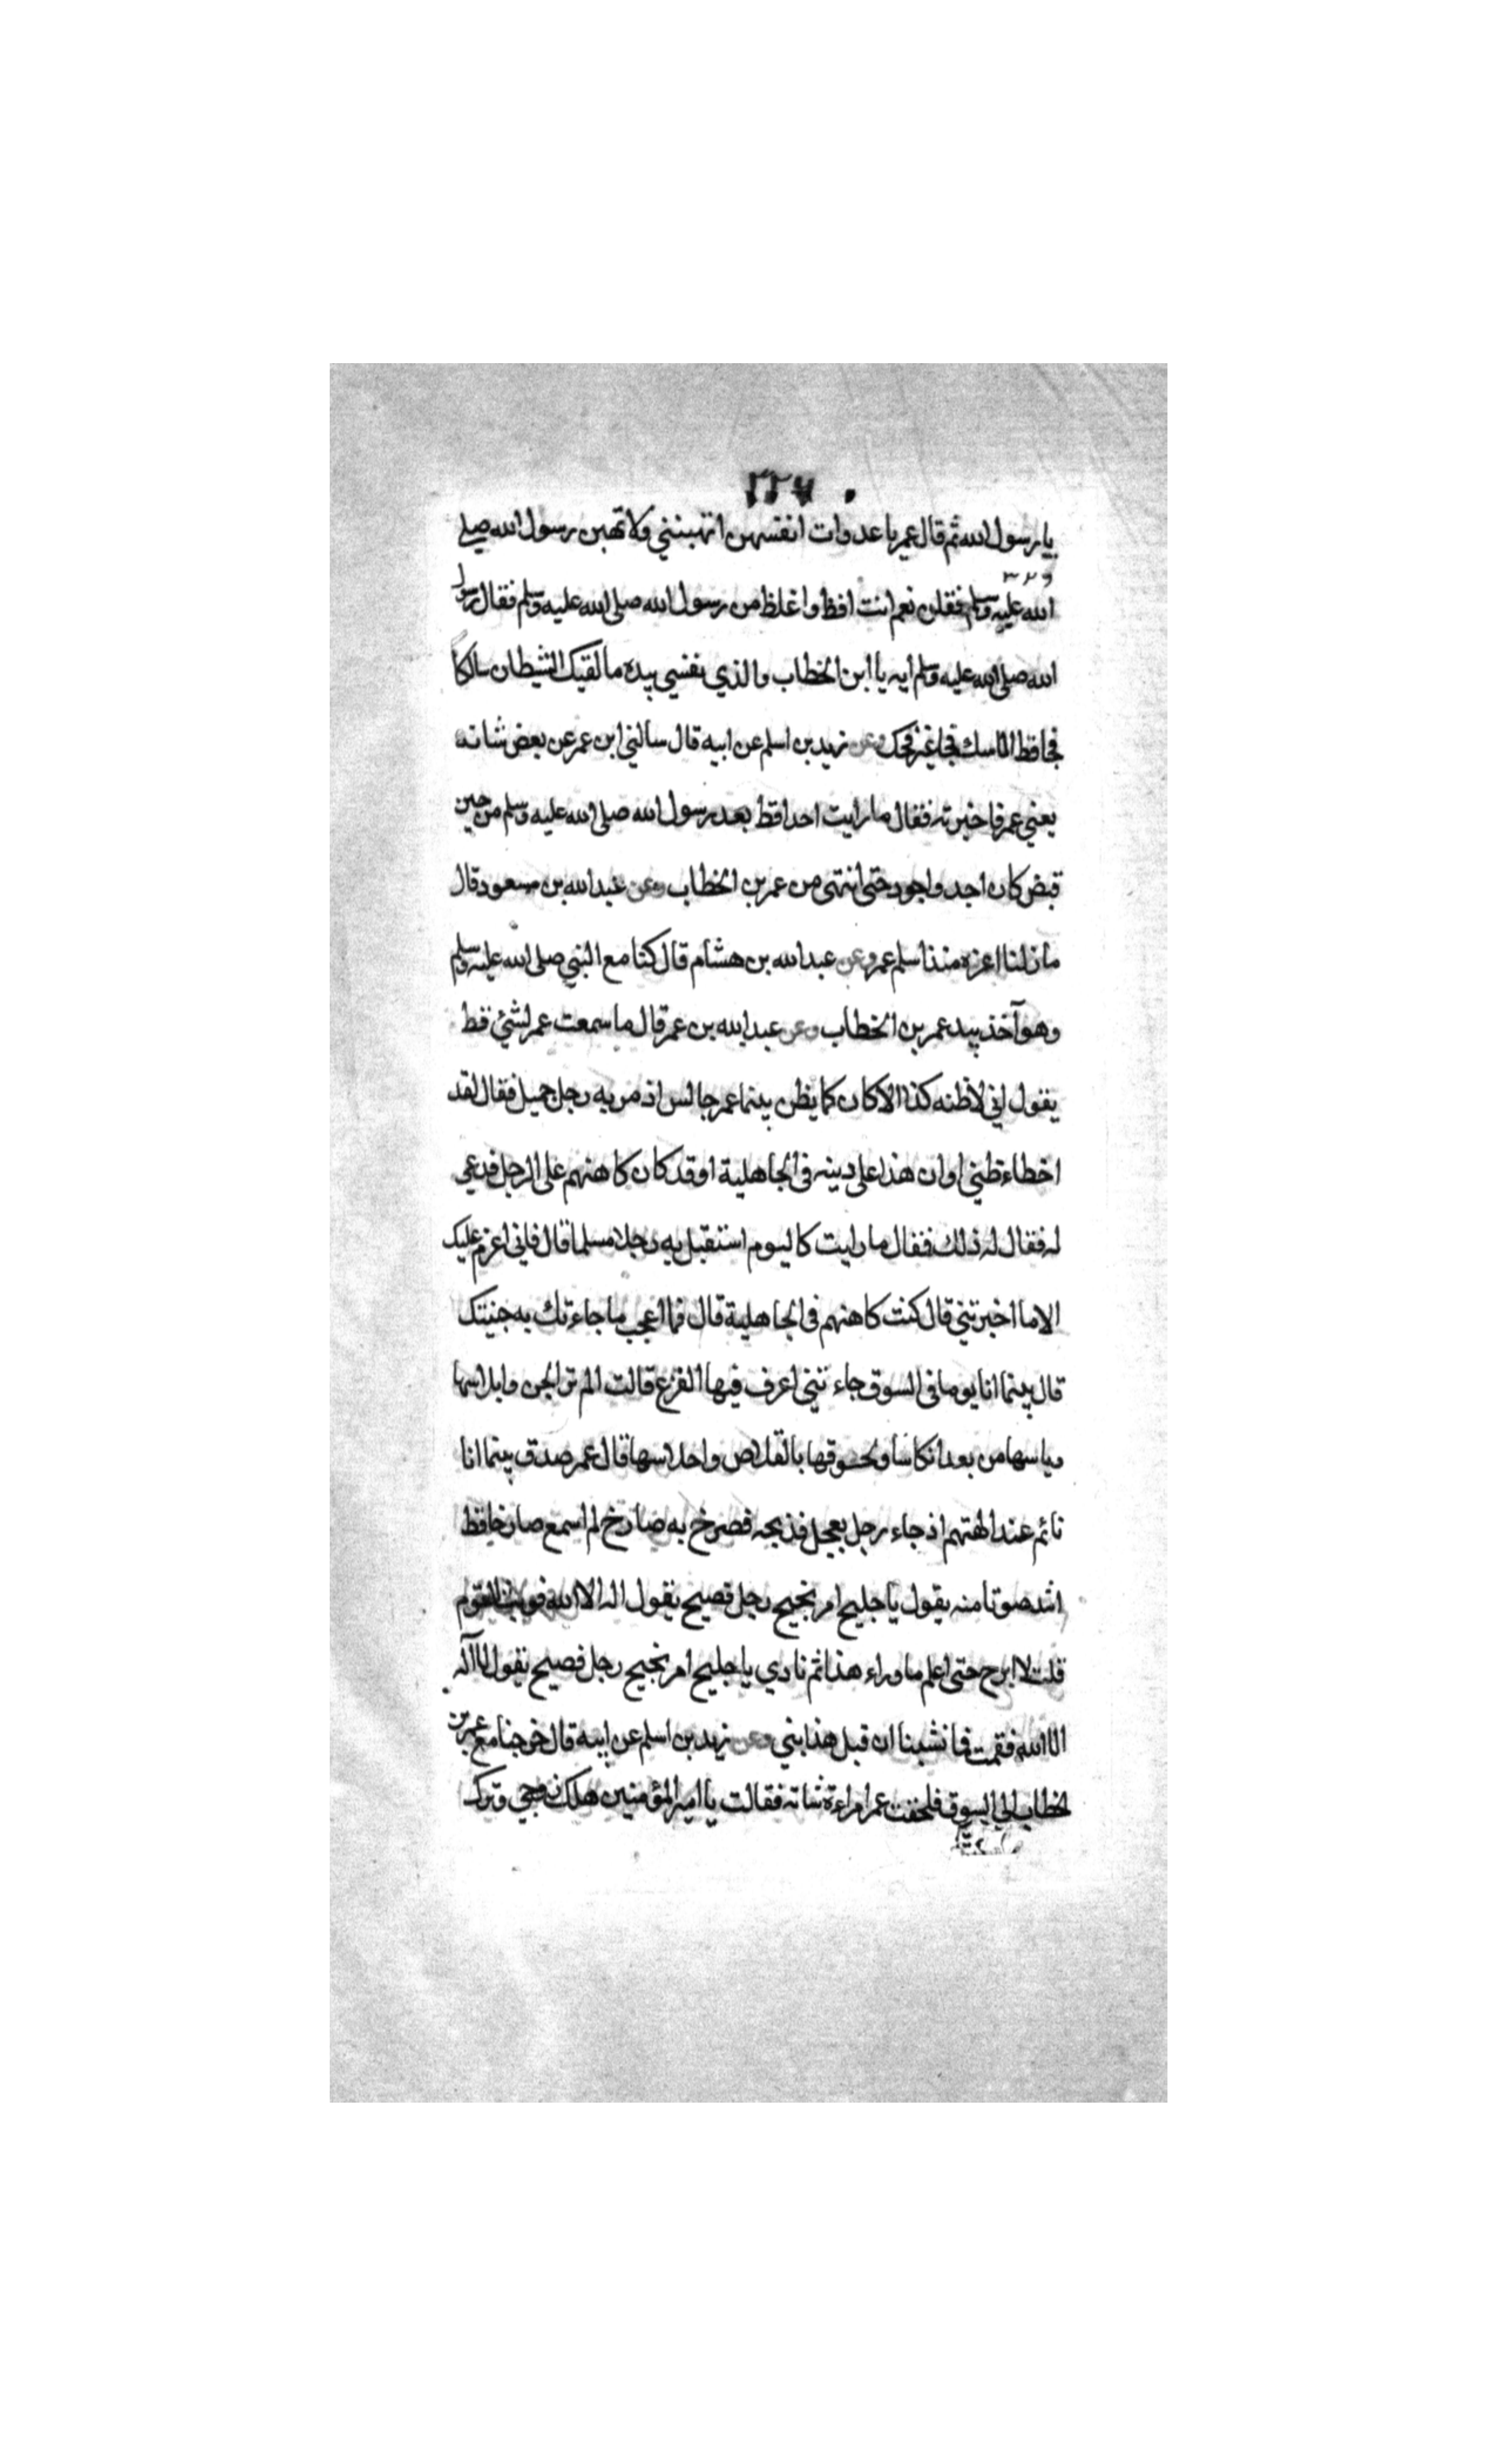 ٢٢٦
يا رسول الله ثم قال عمر يا عدوات انفسهن اتهبنني ولا تهبن رسول الله صلى
الله عليه وسلم فقلن نعم انت افظ واغلظ من رسول الله صلى الله عليه وسلم فقال رسول
الله صلى الله عليه وسلم ايه يا ابن الخطاب والذي نفسي بيده ما لقيك الشيطان سالكا
فجا قط الا سلك فجا غير فجك وعن زيد بن اسلم عن ابيه قال سالني ابن عمر عن بعض شانه
يعني عمر فاخبرته فقال ما رايت احدا قط بعد رسول الله صلى الله عليه وسلم من حين
قبض كان اجد واجود حتى انتهى من عمر بن الخطاب وعن عبد الله بن مسعود قال
ما زلنا اعزه منذ اسلم عمر وعن عبد الله بن هشام قال كنا مع النبي صلى الله عليه وسلم
وهو آخذ بيد عمر بن الخطاب وعن عبد الله بن عمر قال ما سمعت عمر لشئ قط
يقول اني لاظنه كذا الا كان كما يظن بينما عمر جالس اذ مر به رجل جميل فقال لقد
اخطاء ظني او ان هذا على دينه في الجاهلية او قد كان كاهنهم على الرجل فدعي
له فقال له ذلك فقال ما رايت كاليوم استقبل به رجلا مسلما قال فاني اعزم عليك
الا ما اخبرتني قال كنت كاهنهم في الجاهلية قال فما اعجب ما جاءتك به جنيتك
قال بينما انا يوما في السوق جاءتني اعرف فيها الفزع قالت الم تر الجن وابلاسها
وياسها من بعد انكاسا ولحوقها بالقلاص واحلاسها قال عمر صدق بينما انا
نائم عند الهتهم اذ جاء رجل بعجل فذبحه فصرخ به صارخ لم اسمع صارخا قط
اشد صوتا منه يقول يا جليح امر نجيح رجل فصيح يقول اله الا الله فوثب القوم
قلت لا ابرح حتى اعلم ما وراء هذا ثم نادي يا جليح امر نجيح رجل فصيح يقول لا اله
الا الله فقمت فما نشبنا ان قيل هذا نبي وعن زيد بن اسلم عن ابيه قال خرجنا مع عمر بن
لخطاب الي السوق فلحقت عمر امراءة شابة فقالت يا امير المؤمنين هلك زوجي وترك